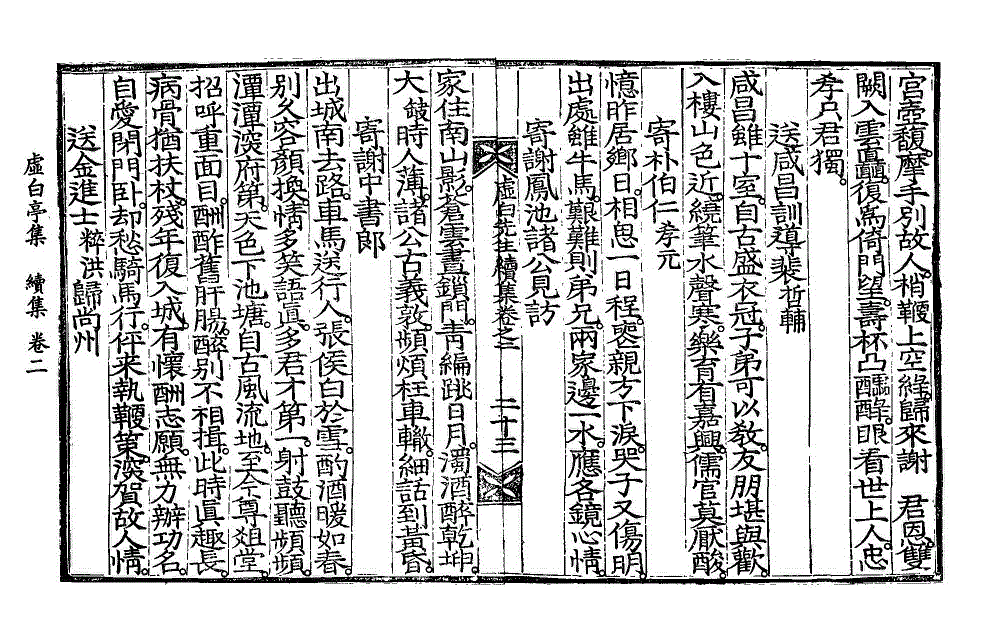 宮壺馥。摩手別故人。梢鞭上空綠。歸來謝　君恩。雙
闕入雲矗。復爲倚門望。壽杯凸醽醁。眼看世上人。忠
孝只君獨。
送咸昌訓導裴哲輔
咸昌雖十室。自古盛衣冠。子弟可以敎。友朋堪與歡。
入樓山色近。繞筆水聲寒。樂育有嘉興。儒官莫厭酸。
寄朴伯仁孝元
憶昨居鄕日。相思一日程。喪親方下淚。哭子又傷明。
出處雖牛馬。艱難則弟兄。兩家邊一水。應各鏡心情。
寄謝鳳池諸公見訪
家住南山影。蒼雲晝鎖門。靑編跳日月。濁酒醉乾坤。
大皷時人薄。諸公古義敦。頻煩枉車轍。細話到黃昏。
寄謝中書郞
出城南去路。車馬送行人。張侯白於雪。酌酒暖如春。
別久容顏換。情多笑語眞。多君才第一。射鼓聽頻頻。
潭潭深府第。天色下池塘。自古風流地。至今尊爼堂。
招呼重面目。酬酢舊肝腸。醉別不相揖。此時眞趣長。
病骨猶扶杖。殘年復入城。有懷酬志願。無力辦功名。
自愛閉門臥。却愁騎馬行。伻来執鞭第。深賀故人情。
送金進士粹洪歸尙州
虛白先生續集卷之二　二十三
虛白亭集　續集　卷二